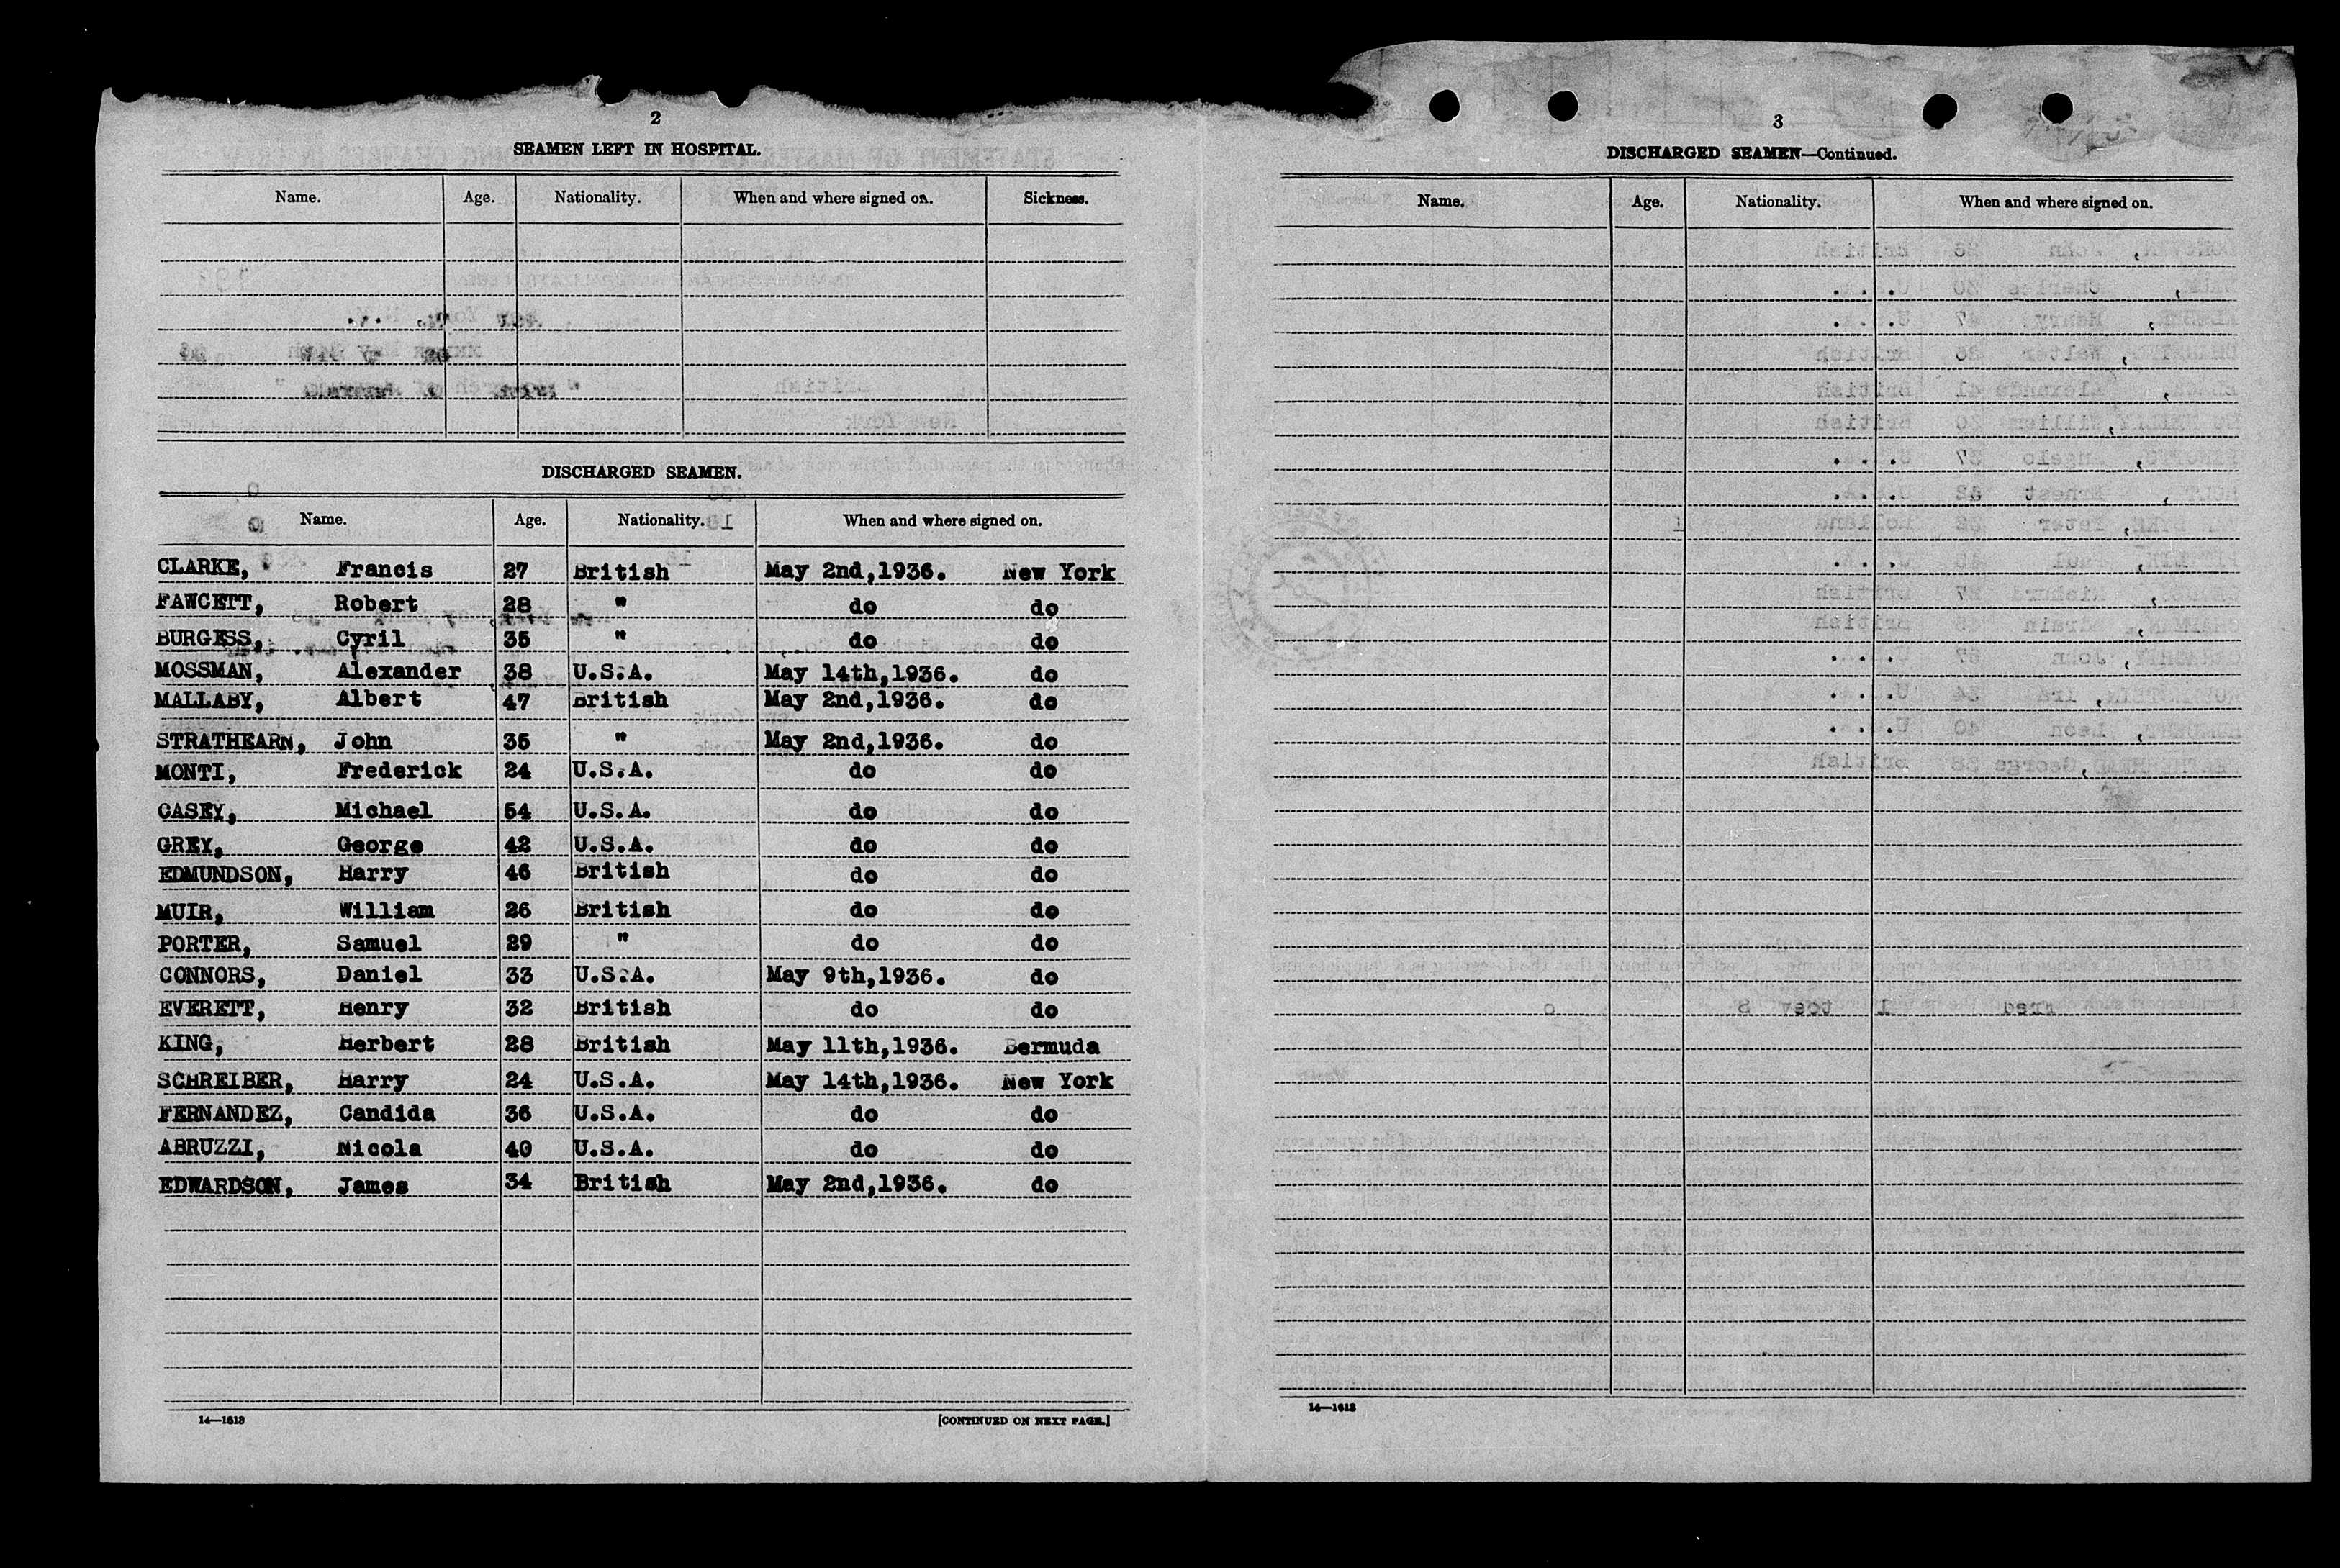 2
SEAMEN LEFT IN HOSPITAL.
Name. Age. Nationality. When and where signed on. Sickness.
DISCHARGED SEAMEN.
Name. Age. Nationality. When and where signed on.
CLARKE, Francis 27 British May 2nd,1936. New York
FAWCETT, Robert 28 " do do
BURGESS, Cyril 35 " do do
MOSSMAN, Alexander 38 U.S.A. May 14th,1936. do
MALLABY, Albert 47 British May 2nd,1936. do
STRATHEARN, John 35 " May 2nd,1936. do
MONTI, Frederick 24 U.S.A. do do
CASEY, Michael 54 U.S.A. do do
GREY, George 42 U.S.A. do do
EDMUNDSON, Harry 46 British do do
MUIR, William 26 British do do
PORTER, Samuel 29 " do do
CONNORS, Daniel 33 U.S.A. May 9th,1936. do
EVERETT, Henry 32 British do do
KING, Herbert 28 British May 11th,1936. Bermuda
SCHREIBER, Harry 24 U.S.A. May 14th,1936. New York
FERNANDEZ, Candida 36 U.S.A. do do
ABRUZZI, Nicola 40 U.S.A. do do
EDWARDSON, James 34 British May 2nd,1936. do
14—1613 [CONTINUED ON NEXT PAGE.]
3
DISCHARGED SEAMEN—Continued.
Name. Age. Nationality. When and where signed on.
14—1613